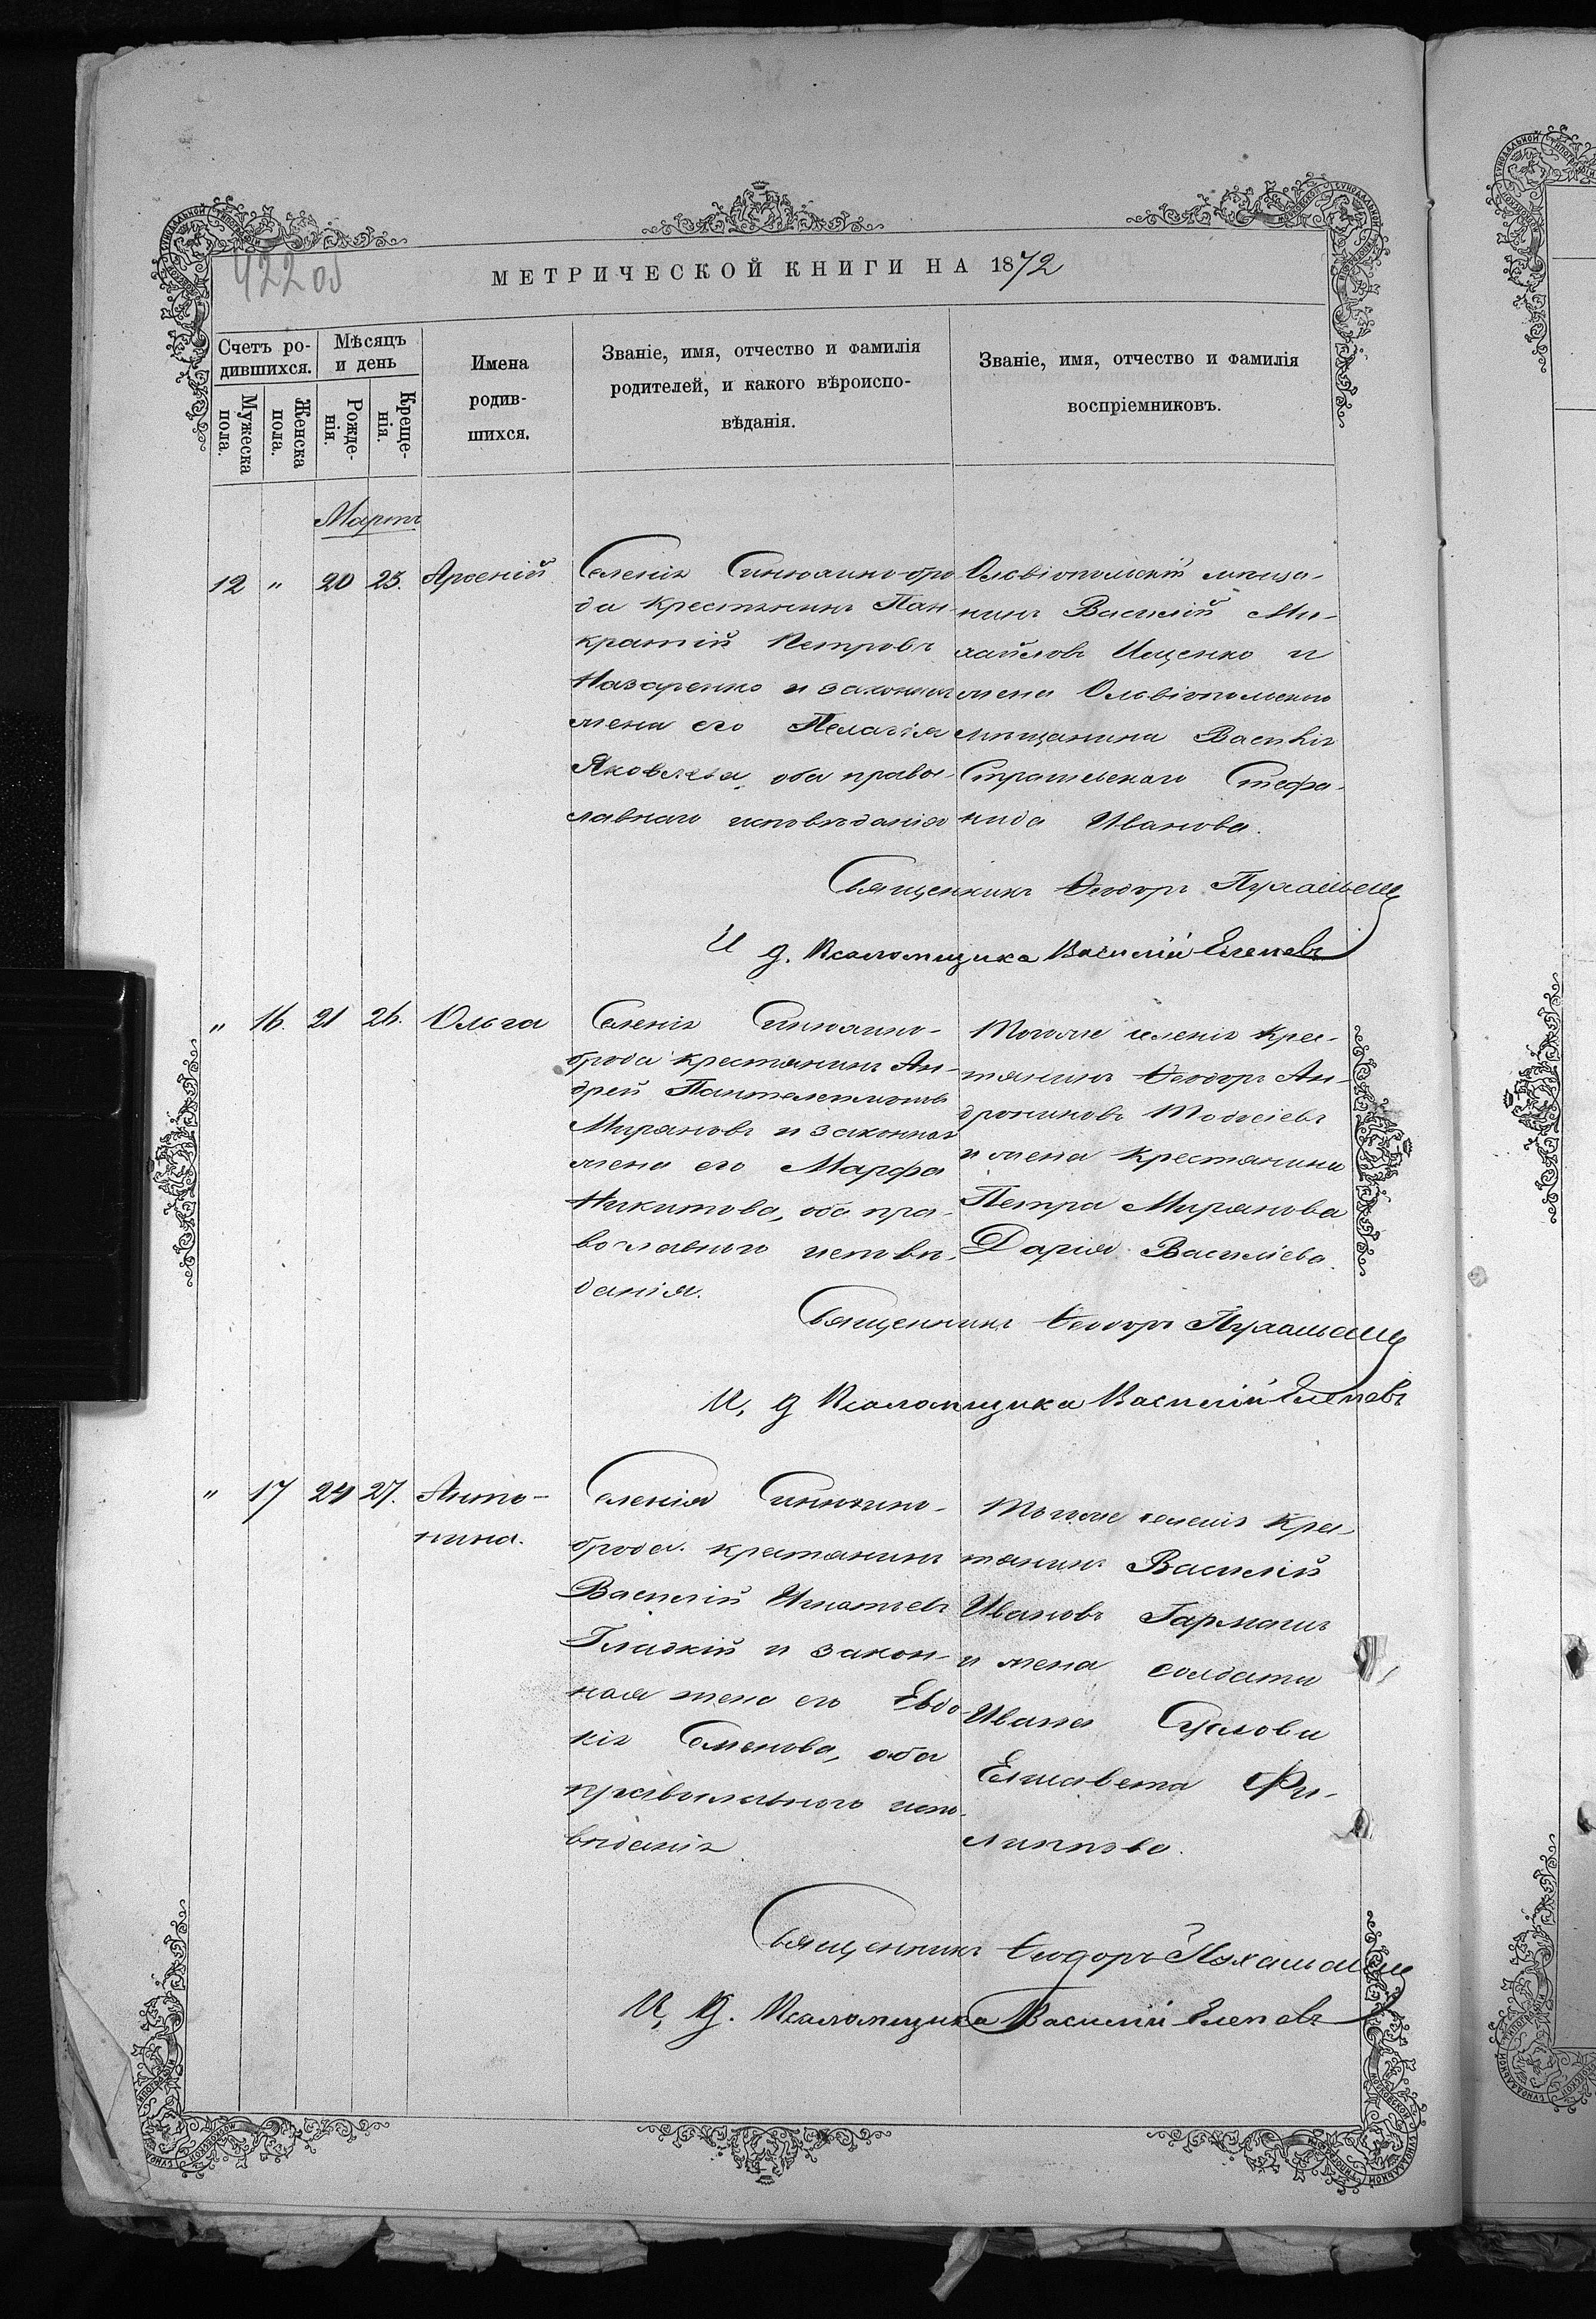 422 об
МЕТРИЧЕСКОЙ КНИГИ НА 1872
Счетъ ро-
дившихся.
Мѣсяцъ
и день
Мужеска
пола.
Женска
пола.
Рожде-
нія.
Креще-
нія.
Имена
родив-
шихся.
Званіе, имя, отчество и фамилія
родителей, и какого вѣроиспо-
вѣданія.
Званіе, имя, отчество и фамилія
воспріемниковъ.
Мартъ
12 " 20 25. Арсеній
Селенія Синюхино-бро
да крестьянинъ Пан-
кратій Петровъ
Назаренко и законная
жена его Пелагія
Яковлева, оба право-
славнаго исповѣданія
Ольвіопольскій мѣща-
нинъ Василій Ми-
хайловъ Ищенко и
жена Ольвіопольскаго
мѣщанина Василія
Стефа-
нида Иванова.
Священникъ Ѳеодоръ
И д. Псаломщика Василій
" 16. 21 26. Ольга
Селенія Синюхино-
брода крестьянинъ Ан-
дрей Пантелеимоновъ
Миряновъ и законная
жена его Марфа
Никитова, оба пра-
вославнаго исповѣ-
данія.
Тогоже селенія крес-
тьянинъ Ѳеодоръ Ан-
дрониковъ Тодосіевъ
и жена крестьянина
Петра Мирянова
Дарія Васильева.
Священникъ Ѳеодоръ
И. д Псаломщика Василій
" 17 24 27. Анто-
нина.
Селенія Синюхино-
брода крестьянинъ
Василій Игнатьевъ
Гладкій и закон-
ная жена его Евдо-
кія Семенова, оба
православнаго испо-
вѣданія
Тогоже селенія крес-
тьянинъ Василій
Ивановъ
и жена солдата
Ивана
Елисавета Фи-
липпова.
Священникъ Ѳеодоръ
И. д. Псаломщика Василій